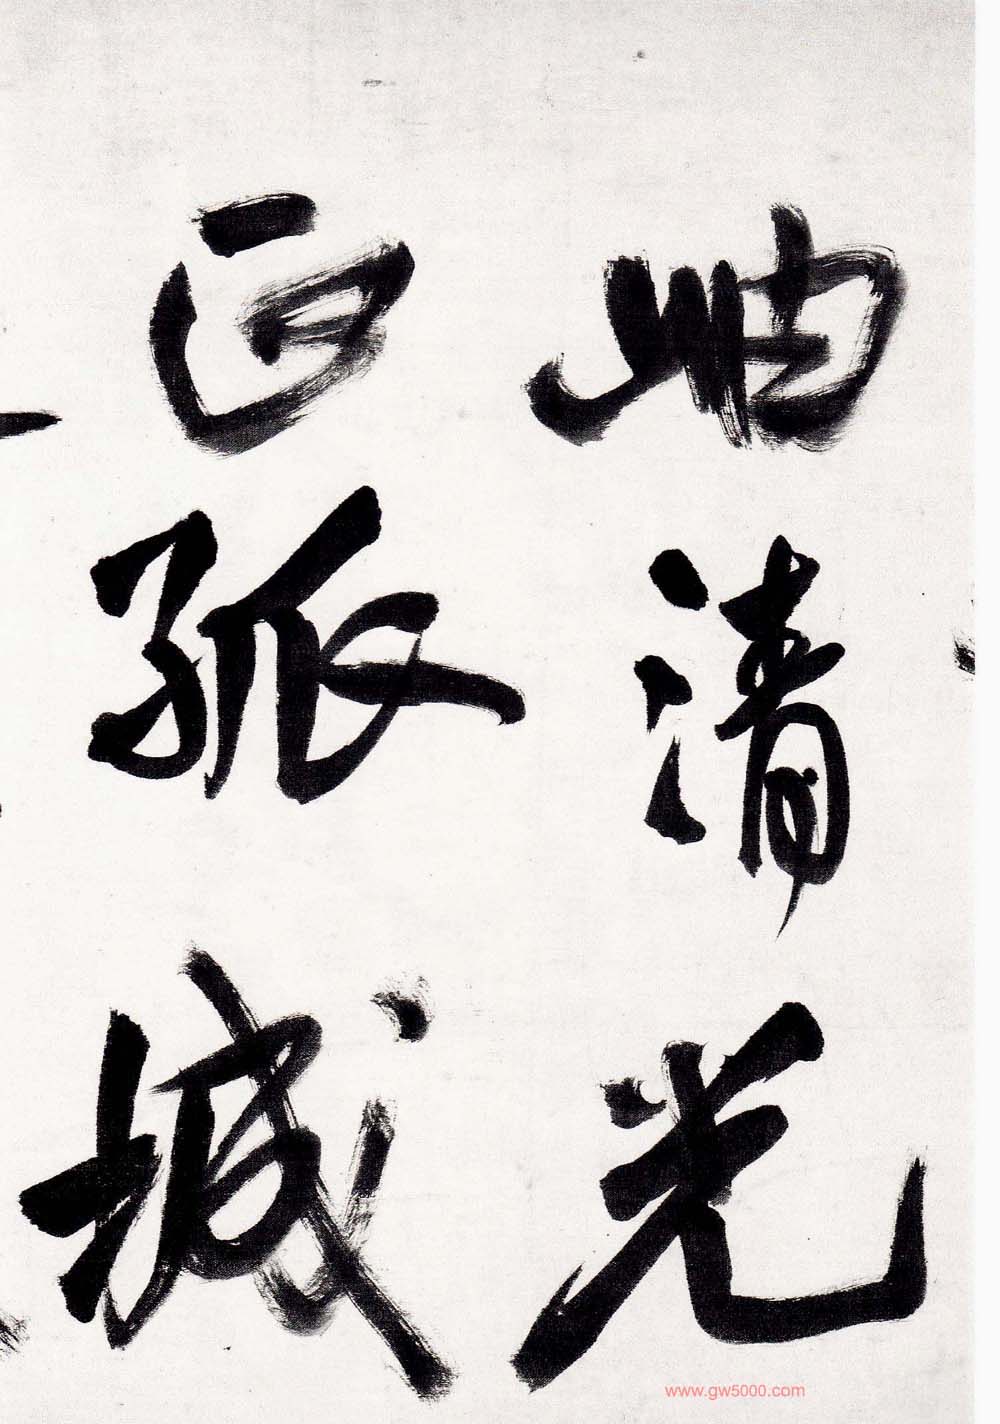 岫清光
孤城
www.gw5000.com